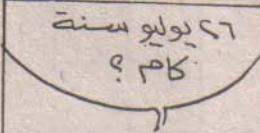 ٢٦ يوليو سنة
كام ؟